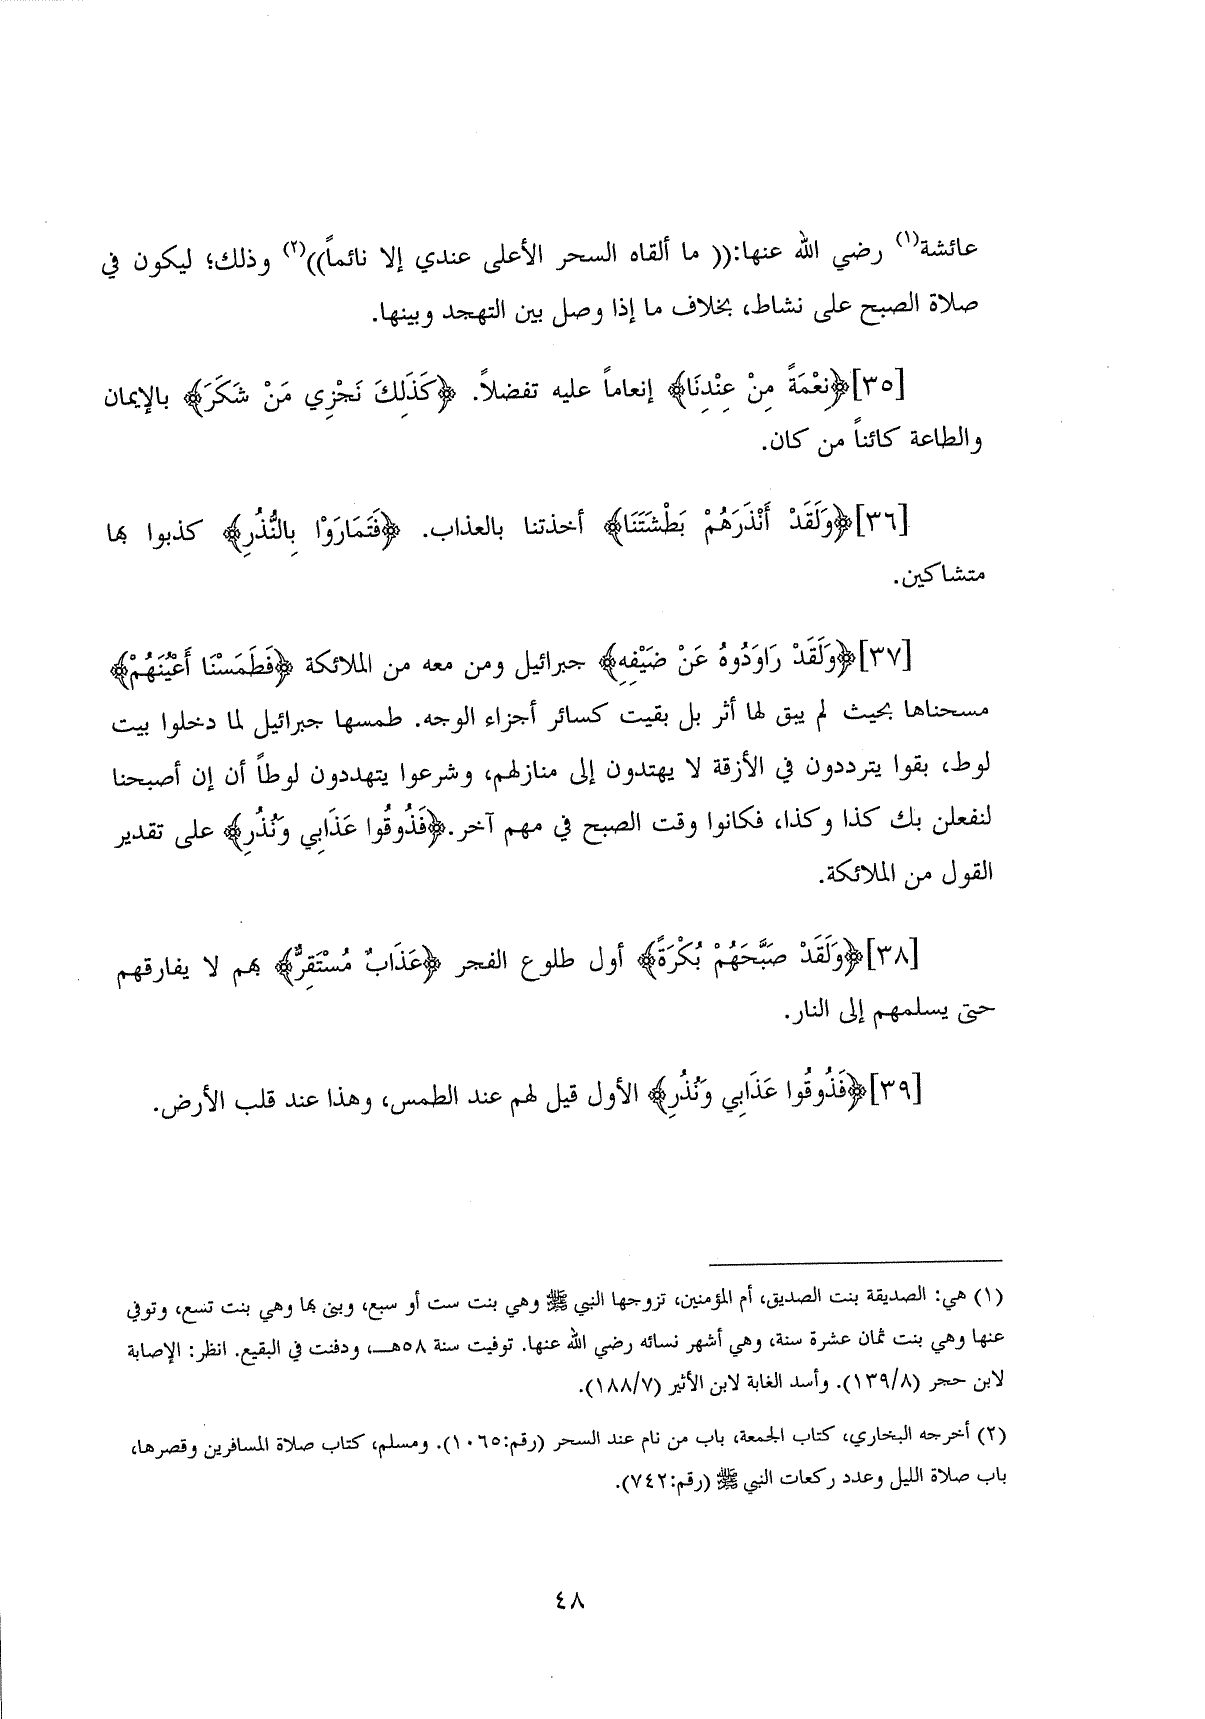 عائشة(١) رضي الله عنها:(( ما ألقاه السحر الأعلى عندي إلا نائماً))(٢) وذلك؛ ليكون في
صلاة الصبح على نشاط، بخلاف ما إذا وصل بين التهجد وبينها.
[٣٥]﴿نِعْمَةً مِنْ عِنْدِنَا﴾ إنعاماً عليه تفضلاً. ﴿كَذَلِكَ نَجْزِي مَنْ شَكَرَ﴾ بالإيمان
والطاعة كائناً من كان.
[٣٦]﴿وَلَقَدْ أَنْذَرَهُمْ بَطْشَتَنَا﴾ أخذتنا بالعذاب. ﴿فَتَمَارَوْا بِالنُّذُرِ﴾ كذبوا بها
متشاكين.
[٣٧]﴿وَلَقَدْ رَاوَدُوهُ عَنْ ضَيْفِهِ﴾ جبرائيل ومن معه من الملائكة ﴿فَطَمَسْنَا أَعْيُنَهُمْ﴾
مسحناها بحيث لم يبق لها أثر بل بقيت كسائر أجزاء الوجه. طمسها جبرائيل لما دخلوا بيت
لوط، بقوا يترددون في الأزقة لا يهتدون إلى منازلهم، وشرعوا يتهددون لوطاً أن إن أصبحنا
لنفعلن بك كذا وكذا، فكانوا وقت الصبح في مهم آخر.﴿فَذُوقُوا عَذَابِي وَنُذُرِ﴾ على تقدير
القول من الملائكة.
[٣٨]﴿وَلَقَدْ صَبَّحَهُمْ بُكْرَةً﴾ أول طلوع الفجر ﴿عَذَابٌ مُسْتَقِرٌّ﴾ بهم لا يفارقهم
حتى يسلمهم إلى النار.
[٣٩]﴿فَذُوقُوا عَذَابِي وَنُذُرِ﴾ الأول قيل لهم عند الطمس، وهذا عند قلب الأرض.
(١) هي: الصديقة بنت الصديق، أم المؤمنين، تزوجها النبي ﷺ وهي بنت ست أو سبع، وبنى بها وهي بنت تسع، وتوفي
عنها وهي بنت ثمان عشرة سنة، وهي أشهر نسائه رضي الله عنها. توفيت سنة ٥٨هـ، ودفنت في البقيع. انظر: الإصابة
لابن حجر (١٣٩/٨). وأسد الغابة لابن الأثير (١٨٨/٧).
(٢) أخرجه البخاري، كتاب الجمعة، باب من نام عند السحر (رقم:١٠٦٥). ومسلم، كتاب صلاة المسافرين وقصرها،
باب صلاة الليل وعدد ركعات النبي ﷺ (رقم:٧٤٢).
٤٨